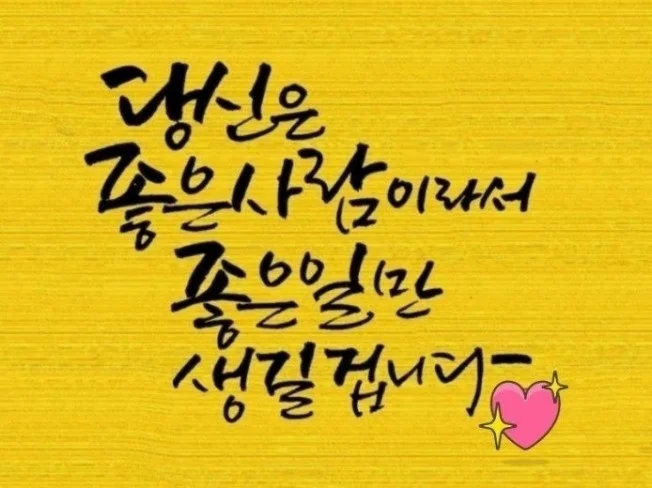 당신은
좋은사람이라서
좋은일만
생길겁니다